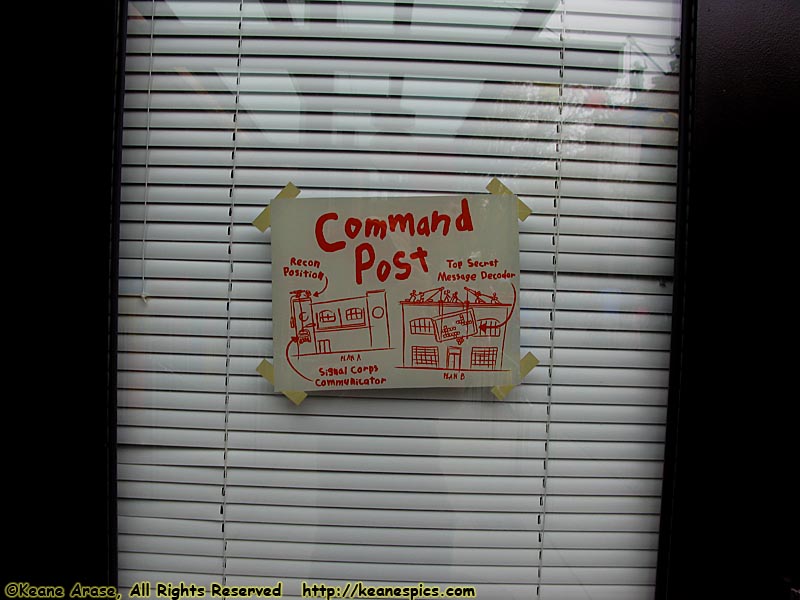 Command
Post
Recon
Position
Top Secret
Message Decoder
PLAN A
PLAN B
Signal Corps
Communicator
©Keane Arase, All Rights Reserved http://keanespics.com